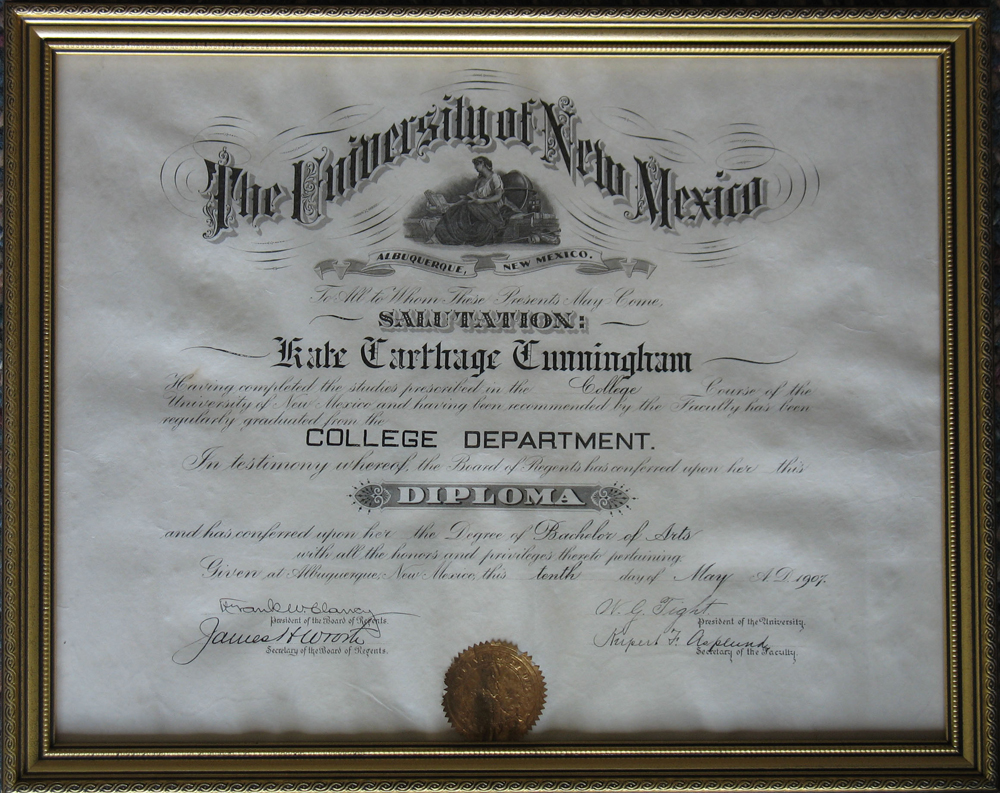 The University of New Mexico
ALBUQUERQUE, NEW MEXICO.
To All to Whom These Presents May Come,
SALUTATION:
Kate Carthage Cunningham
Having completed the studies prescribed in the College Course of the
University of New Mexico and having been recommended by the Faculty has been
regularly graduated from the
COLLEGE DEPARTMENT.
In testimony whereof, the Board of Regents has conferred upon her this
DIPLOMA
and has conferred upon her the Degree of Bachelor of Arts
with all the honors and privileges thereto pertaining.
Given at Albuquerque, New Mexico, this tenth day of May A.D. 1907.
Frank W. Clancy
President of the Board of Regents.
James H Wroth
Secretary of the Board of Regents.
W. G. Tight
President of the University.
Rupert F. Asplund
Secretary of the Faculty.